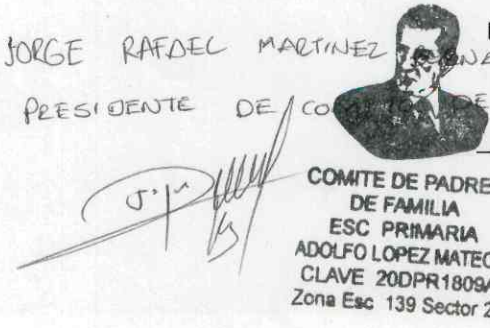 JORGE RAFAEL MARTINEZ
PRESIDENTE DE COMITE DE
COMITE DE PADRE
DE FAMILIA
ESC PRIMARIA
ADOLFO LOPEZ MATEO
CLAVE 20DPR1809A
Zona Esc 139 Sector 2